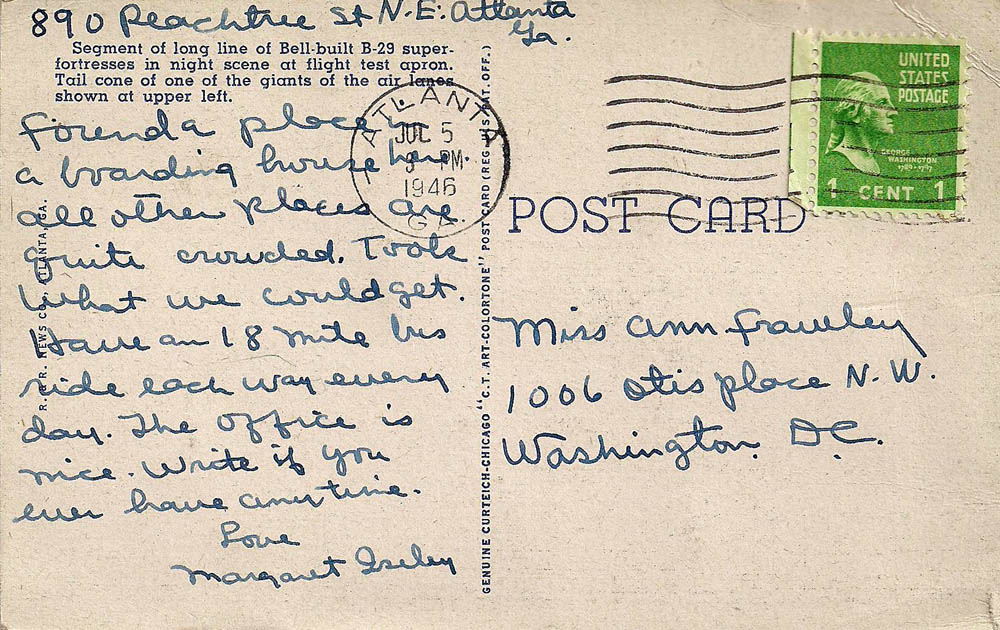 890 Peachtree St N.E. Atlanta
Ga.
Segment of long line of Bell-built B-29 super-
fortresses in night scene at flight test apron.
Tail cone of one of the giants of the air lanes
shown at upper left.
Found a place in
a boarding house here.
all other places are
quite crowded. Took
what we could get.
Have an 18 mile bus
ride each way every
day. The office is
nice. Write if you
ever have any time.
Love
Margaret Iseley
R. & R. NEWS CO., ATLANTA, GA.
GENUINE CURTEICH-CHICAGO "C. T. ART-COLORTONE" POST CARD (REG. U. S. PAT. OFF.)
ATLANTA
JUL 5
9 PM
1946
GA.
UNITED
STATES
POSTAGE
GEORGE
WASHINGTON
1789-1797
1 CENT 1
POST CARD
Miss Ann Frawley
1006 Otis place N.W.
Washington, D.C.